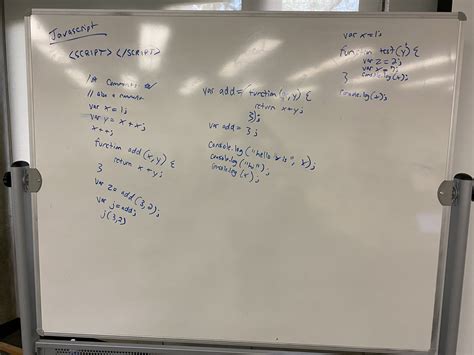 Javascript
<SCRIPT> </SCRIPT>
/* Comments */
// also a comment
var x = 1;
var y = x + x;
x++;
function add (x, y) {
return x + y;
}
var z = add (3, 2);
var j = add;
j (3, 2)
var add = function (x, y) {
return x + y;
});
var add = 3;
console.log ("hello x is", x);
console.log ("hi");
console.log (x);
var x = 1;
function test (y) {
var z = 2;
var x =
console.log (x);
}
console.log (x);